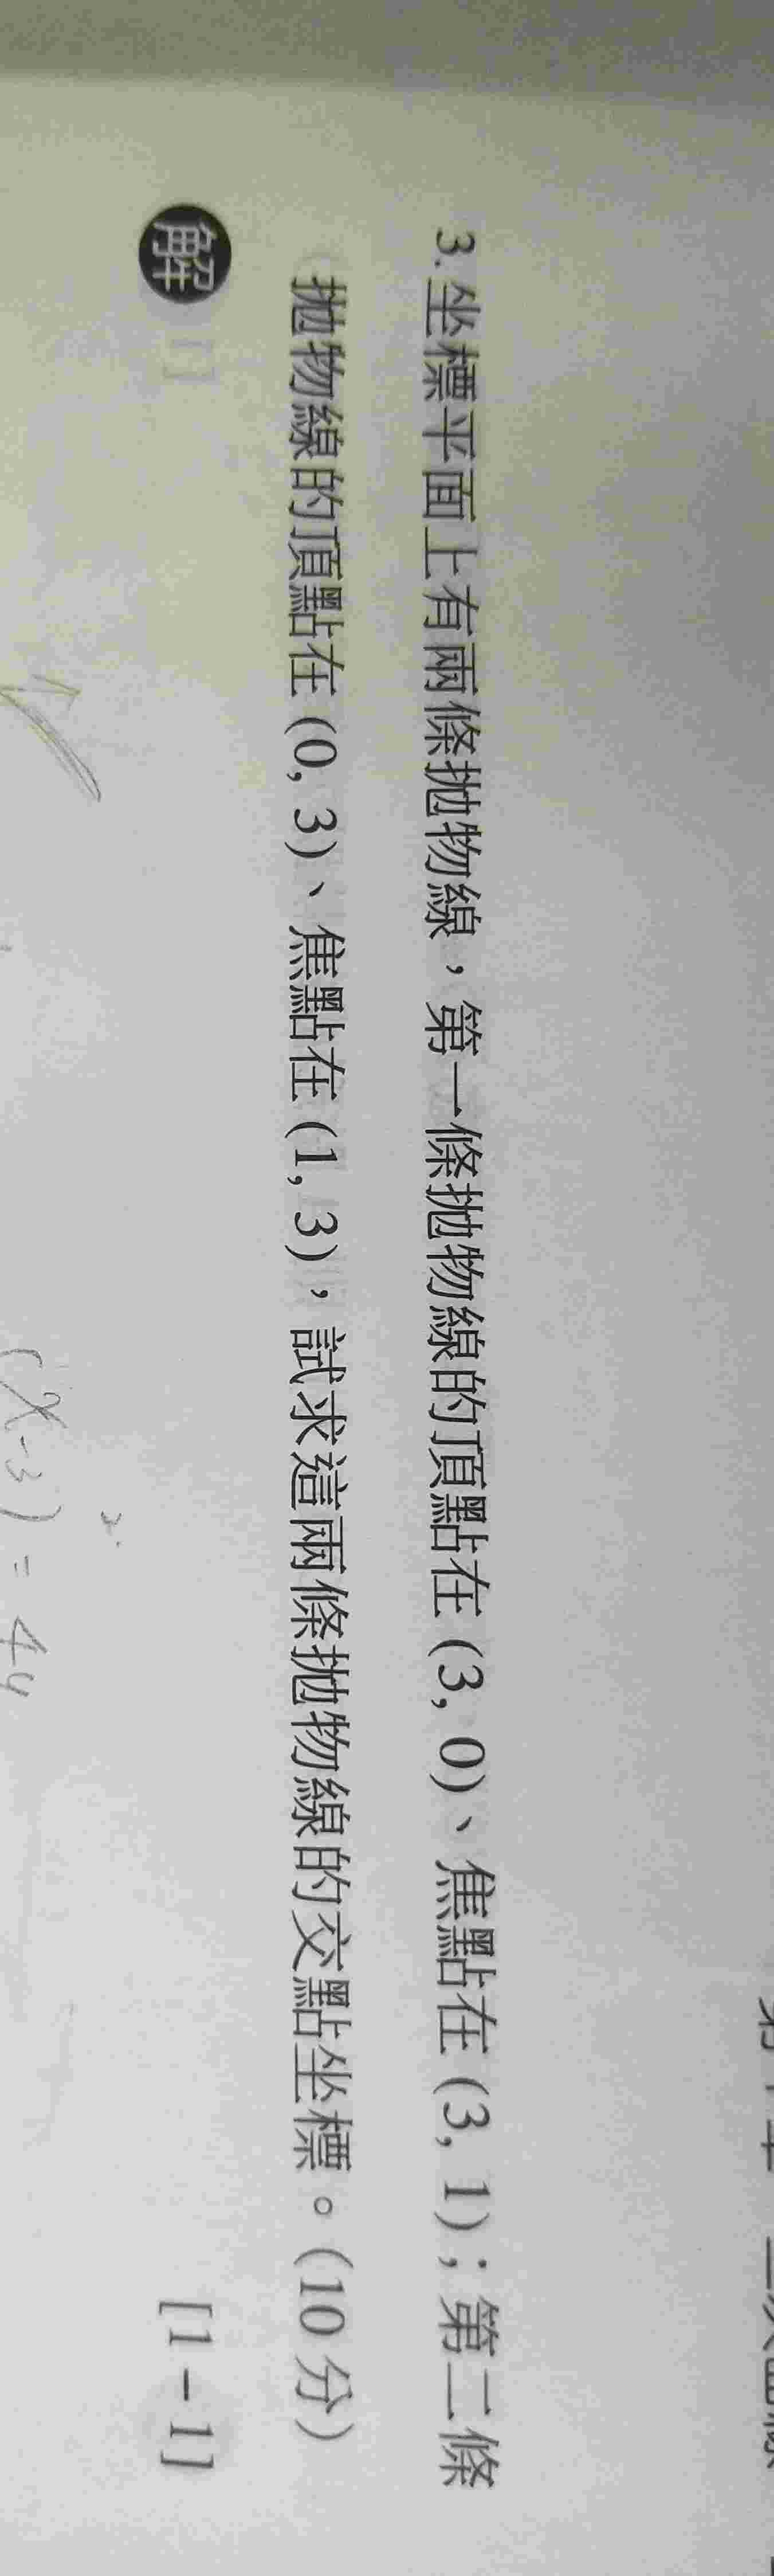 3. 坐標平面上有兩條拋物線，第一條拋物線的頂點在 (3, 0)、焦點在 (3, 1)；第二條
拋物線的頂點在 (0, 3)、焦點在 (1, 3)，試求這兩條拋物線的交點坐標。(10 分)
解
[1－1]
(x-3)² = 4y